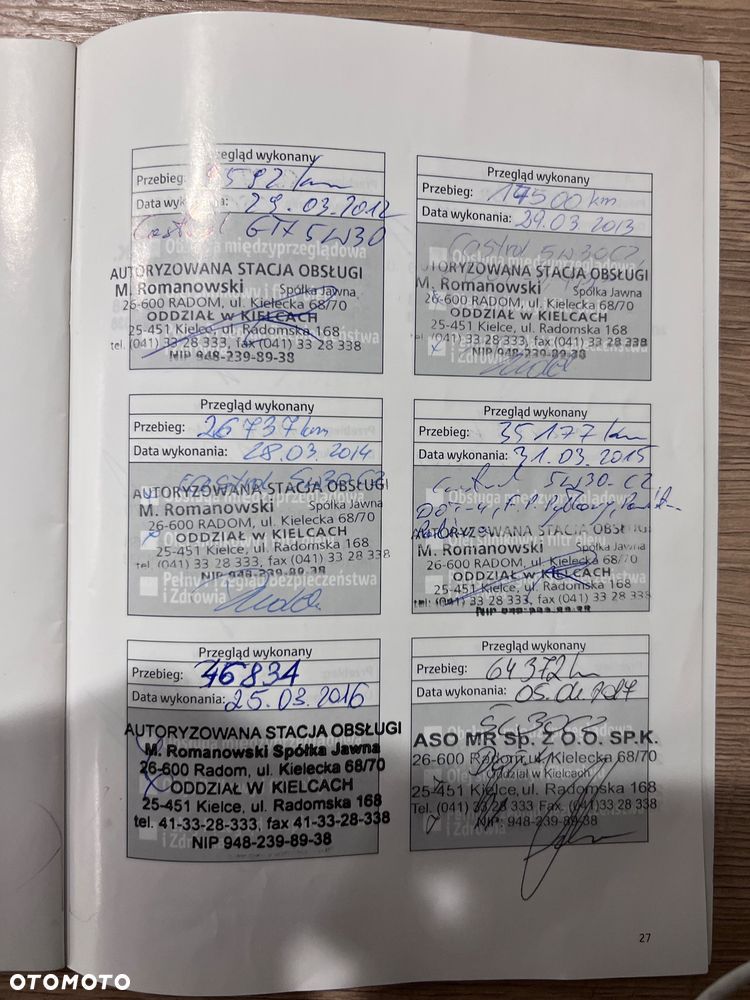 Przegląd wykonany
Przebieg: 9592 km
Data wykonania: 29.03.2012
Castrol GTX 5W30
Obsługa międzyprzeglądowa
AUTORYZOWANA STACJA OBSŁUGI
M. Romanowski Spółka Jawna
26-600 RADOM, ul. Kielecka 68/70
ODDZIAŁ w KIELCACH
25-451 Kielce, ul. Radomska 168
tel. (041) 33 28 333, fax (041) 33 28 338
NIP 948-239-89-38
Przegląd wykonany
Przebieg: 17500 km
Data wykonania: 29.03.2013
Castrol 5W30 C2
Obsługa międzyprzeglądowa
AUTORYZOWANA STACJA OBSŁUGI
M. Romanowski Spółka Jawna
26-600 RADOM, ul. Kielecka 68/70
ODDZIAŁ w KIELCACH
25-451 Kielce, ul. Radomska 168
tel. (041) 33 28 333, fax (041) 33 28 338
i Zdrowia NIP 948-239-89-38
Przegląd wykonany
Przebieg: 26737 km
Data wykonania: 28.03.2014
Castrol 5W30 C2
Obsługa międzyprzeglądowa
AUTORYZOWANA STACJA OBSŁUGI
M. Romanowski Spółka Jawna
26-600 RADOM, ul. Kielecka 68/70
ODDZIAŁ w KIELCACH
25-451 Kielce, ul. Radomska 168
tel. (041) 33 28 333, fax (041) 33 28 338
NIP 948-239-89-38
Pełny Przegląd Bezpieczeństwa
i Zdrowia
Przegląd wykonany
Przebieg: 35177 km
Data wykonania: 31.03.2015
5W30 C2
Obsługa międzyprzeglądowa
DOT-4, F.
AUTORYZOWANA STACJA OBSŁUGI
M. Romanowski Spółka Jawna
26-600 RADOM, ul. Kielecka 68/70
ODDZIAŁ w KIELCACH
25-451 Kielce, ul. Radomska 168
tel. (041) 33 28 333, fax (041) 33 28 338
i Zdrowia
Przegląd wykonany
Przebieg: 46834
Data wykonania: 25.03.2016
AUTORYZOWANA STACJA OBSŁUGI
M. Romanowski Spółka Jawna
26-600 Radom, ul. Kielecka 68/70
ODDZIAŁ w KIELCACH
25-451 Kielce, ul. Radomska 168
tel. 41-33-28-333, fax 41-33-28-338
NIP 948-239-89-38
Przegląd wykonany
Przebieg: 64372 km
Data wykonania: 05.04.2017
ASO MR Sp. Z O.O. SP.K.
26-600 Radom, ul. Kielecka 68/70
Oddział w Kielcach
25-451 Kielce, ul. Radomska 168
Tel. (041) 333 28 333 Fax. (041) 33 28 338
NIP. 948-239-89-38
i Zdrowia
27
OTOMOTO